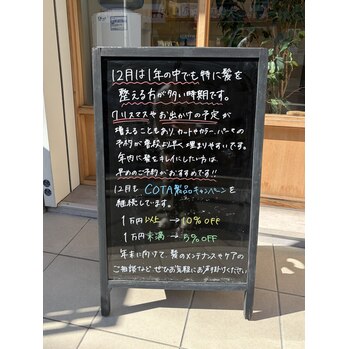 12月は1年の中でも特に髪を
整える方が多い時期です。
クリスマスやお出かけの予定が
増えることもあり、カットやカラー、パーマの
予約が普段より早く埋まりやすいです。
年内に髪をキレイにしたい方は
早めのご予約がおすすめです!!
12月も COTA製品キャンペーンを
継続しています。
1万円以上 → 10% OFF
1万円未満 → 5% OFF
年末に向けて、髪のメンテナンスやケアの
ご相談など ぜひお気軽にお声掛けください